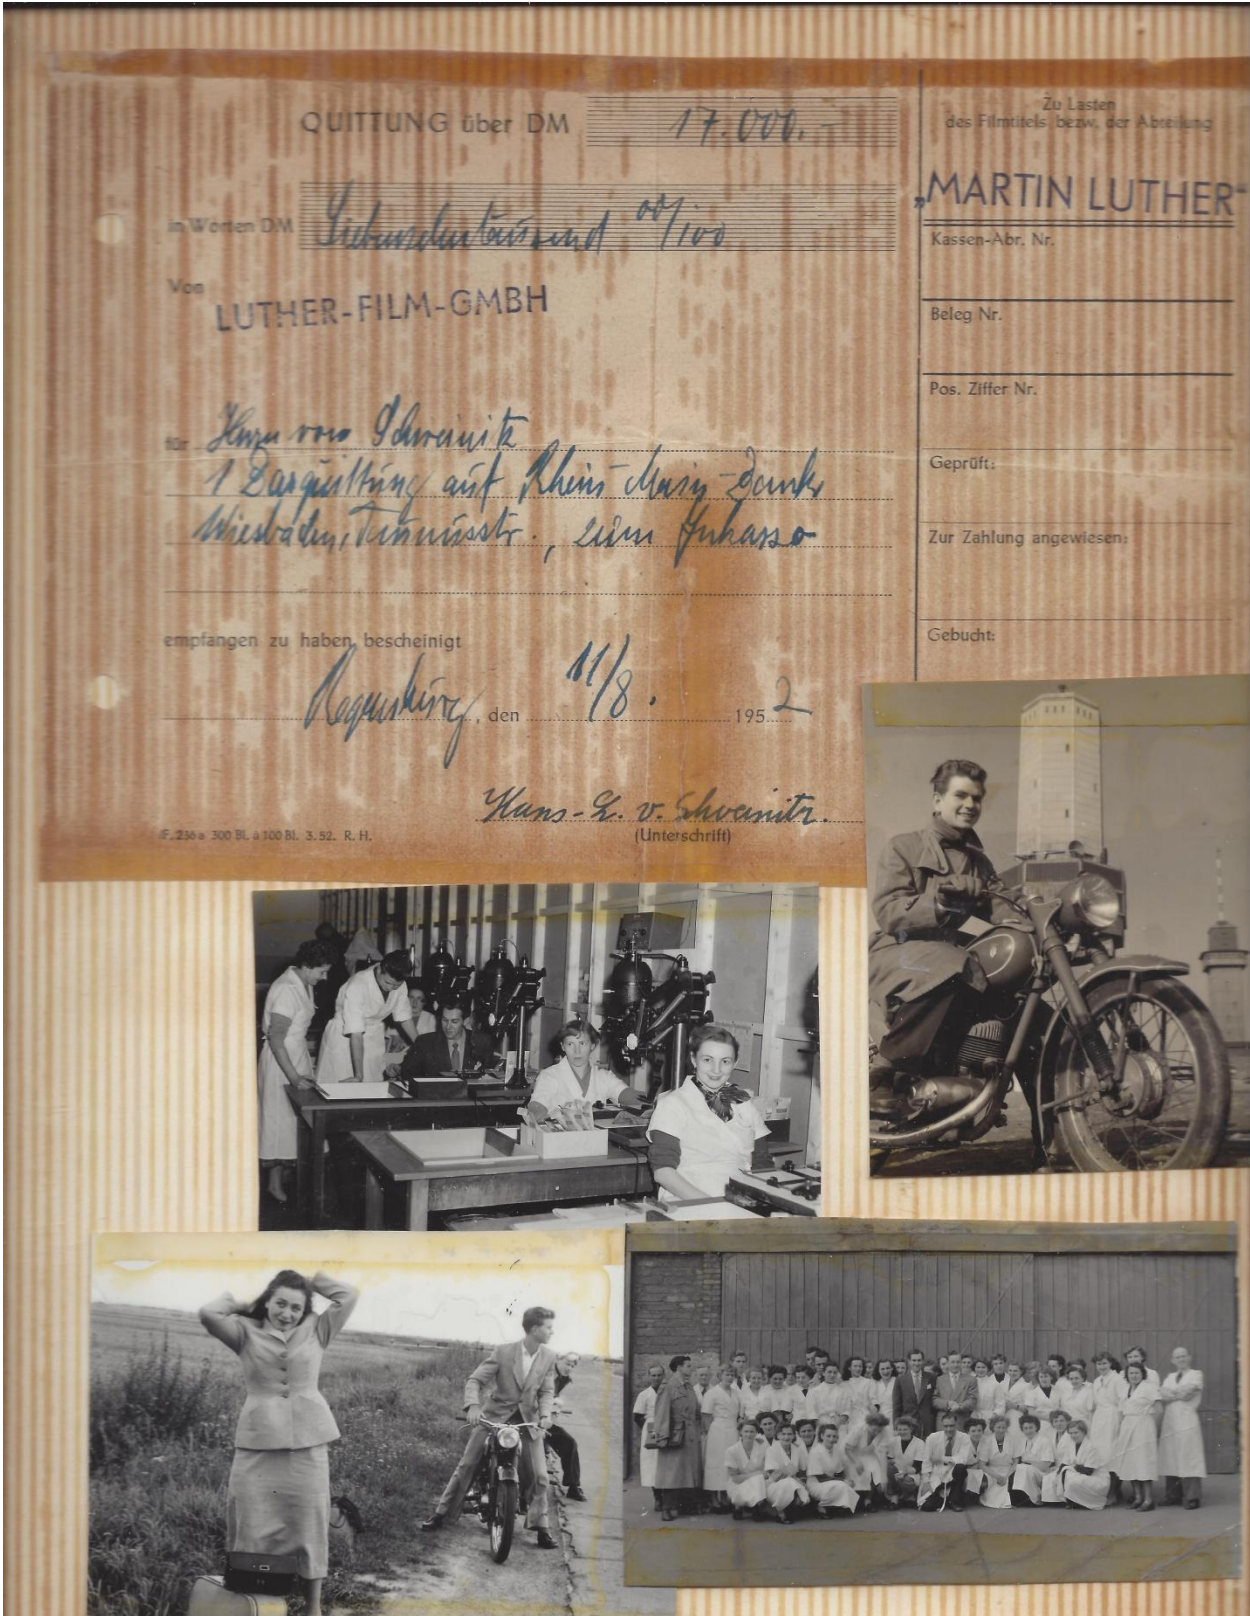 QUITTUNG über DM 17.000.-
in Worten DM Siebenzehntausend 00/100
Von
LUTHER-FILM-GMBH
für Herrn von Schweinitz
1 Barquittung auf Rhein-Main-Bank
Wiesbaden, Taunusstr., zum Inkasso
empfangen zu haben, bescheinigt
Regensburg, den 11/8. 1952
Hans-L. v. Schweinitz.
(Unterschrift)
F. 236a 300 Bl. à 100 Bl. 3. 52. R. H.
Zu Lasten
des Filmtitels bezw. der Abteilung
„MARTIN LUTHER"
Kassen-Abr. Nr.
Beleg Nr.
Pos. Ziffer Nr.
Geprüft:
Zur Zahlung angewiesen:
Gebucht: